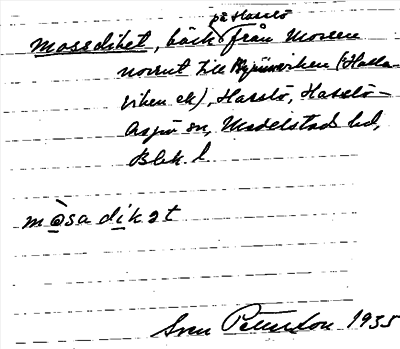 på Hasslö
Mossdiket, bäck från Mossen
norrut till (Halla-
viken ek), Hasslö, Hasslö-
Aspö sn, Medelstads hd,
Blek. l
mòsadikət
Sven Petersson 1935